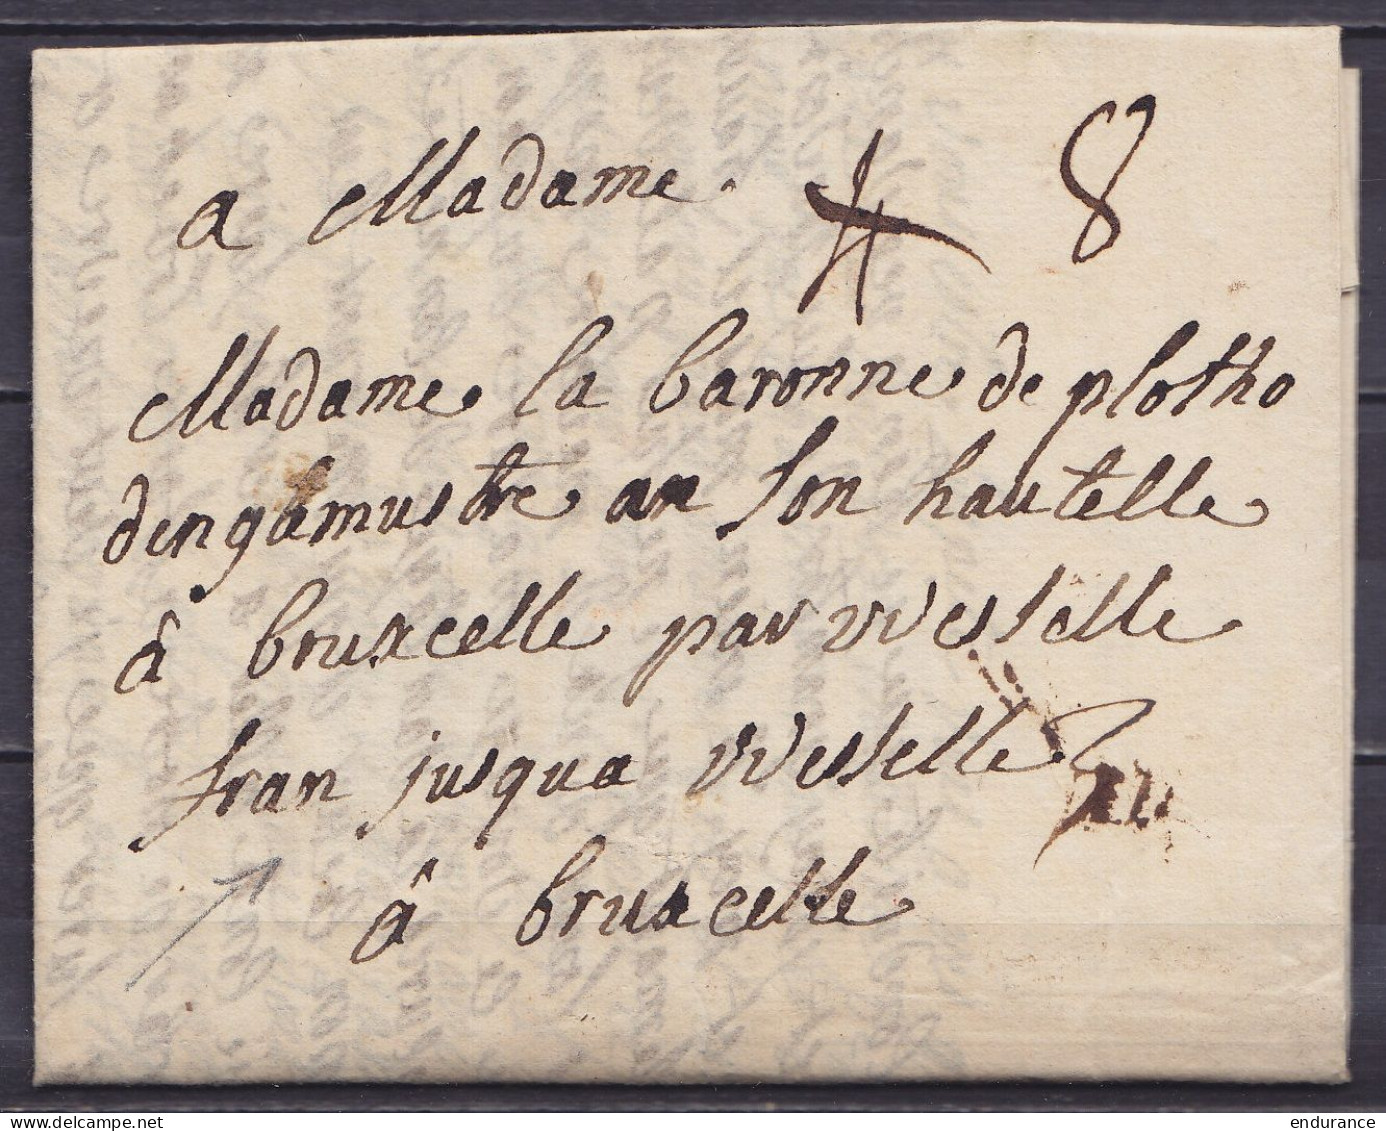 a Madame 8
Madame la baronne de plotho
dengelmustre an son hautelle
â bruxcelle par wesselle
fran jusqua wesselle
â bruxcelle
endurance